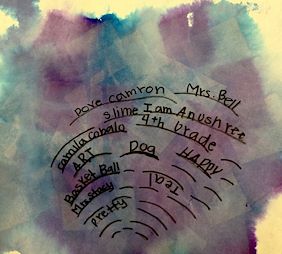 Dove camron
Mrs. Bell
slime I am Anushree
Camila Cabalo
4th Grade
ART
Dog
HAPPY
Basket Ball
Teal
pretty